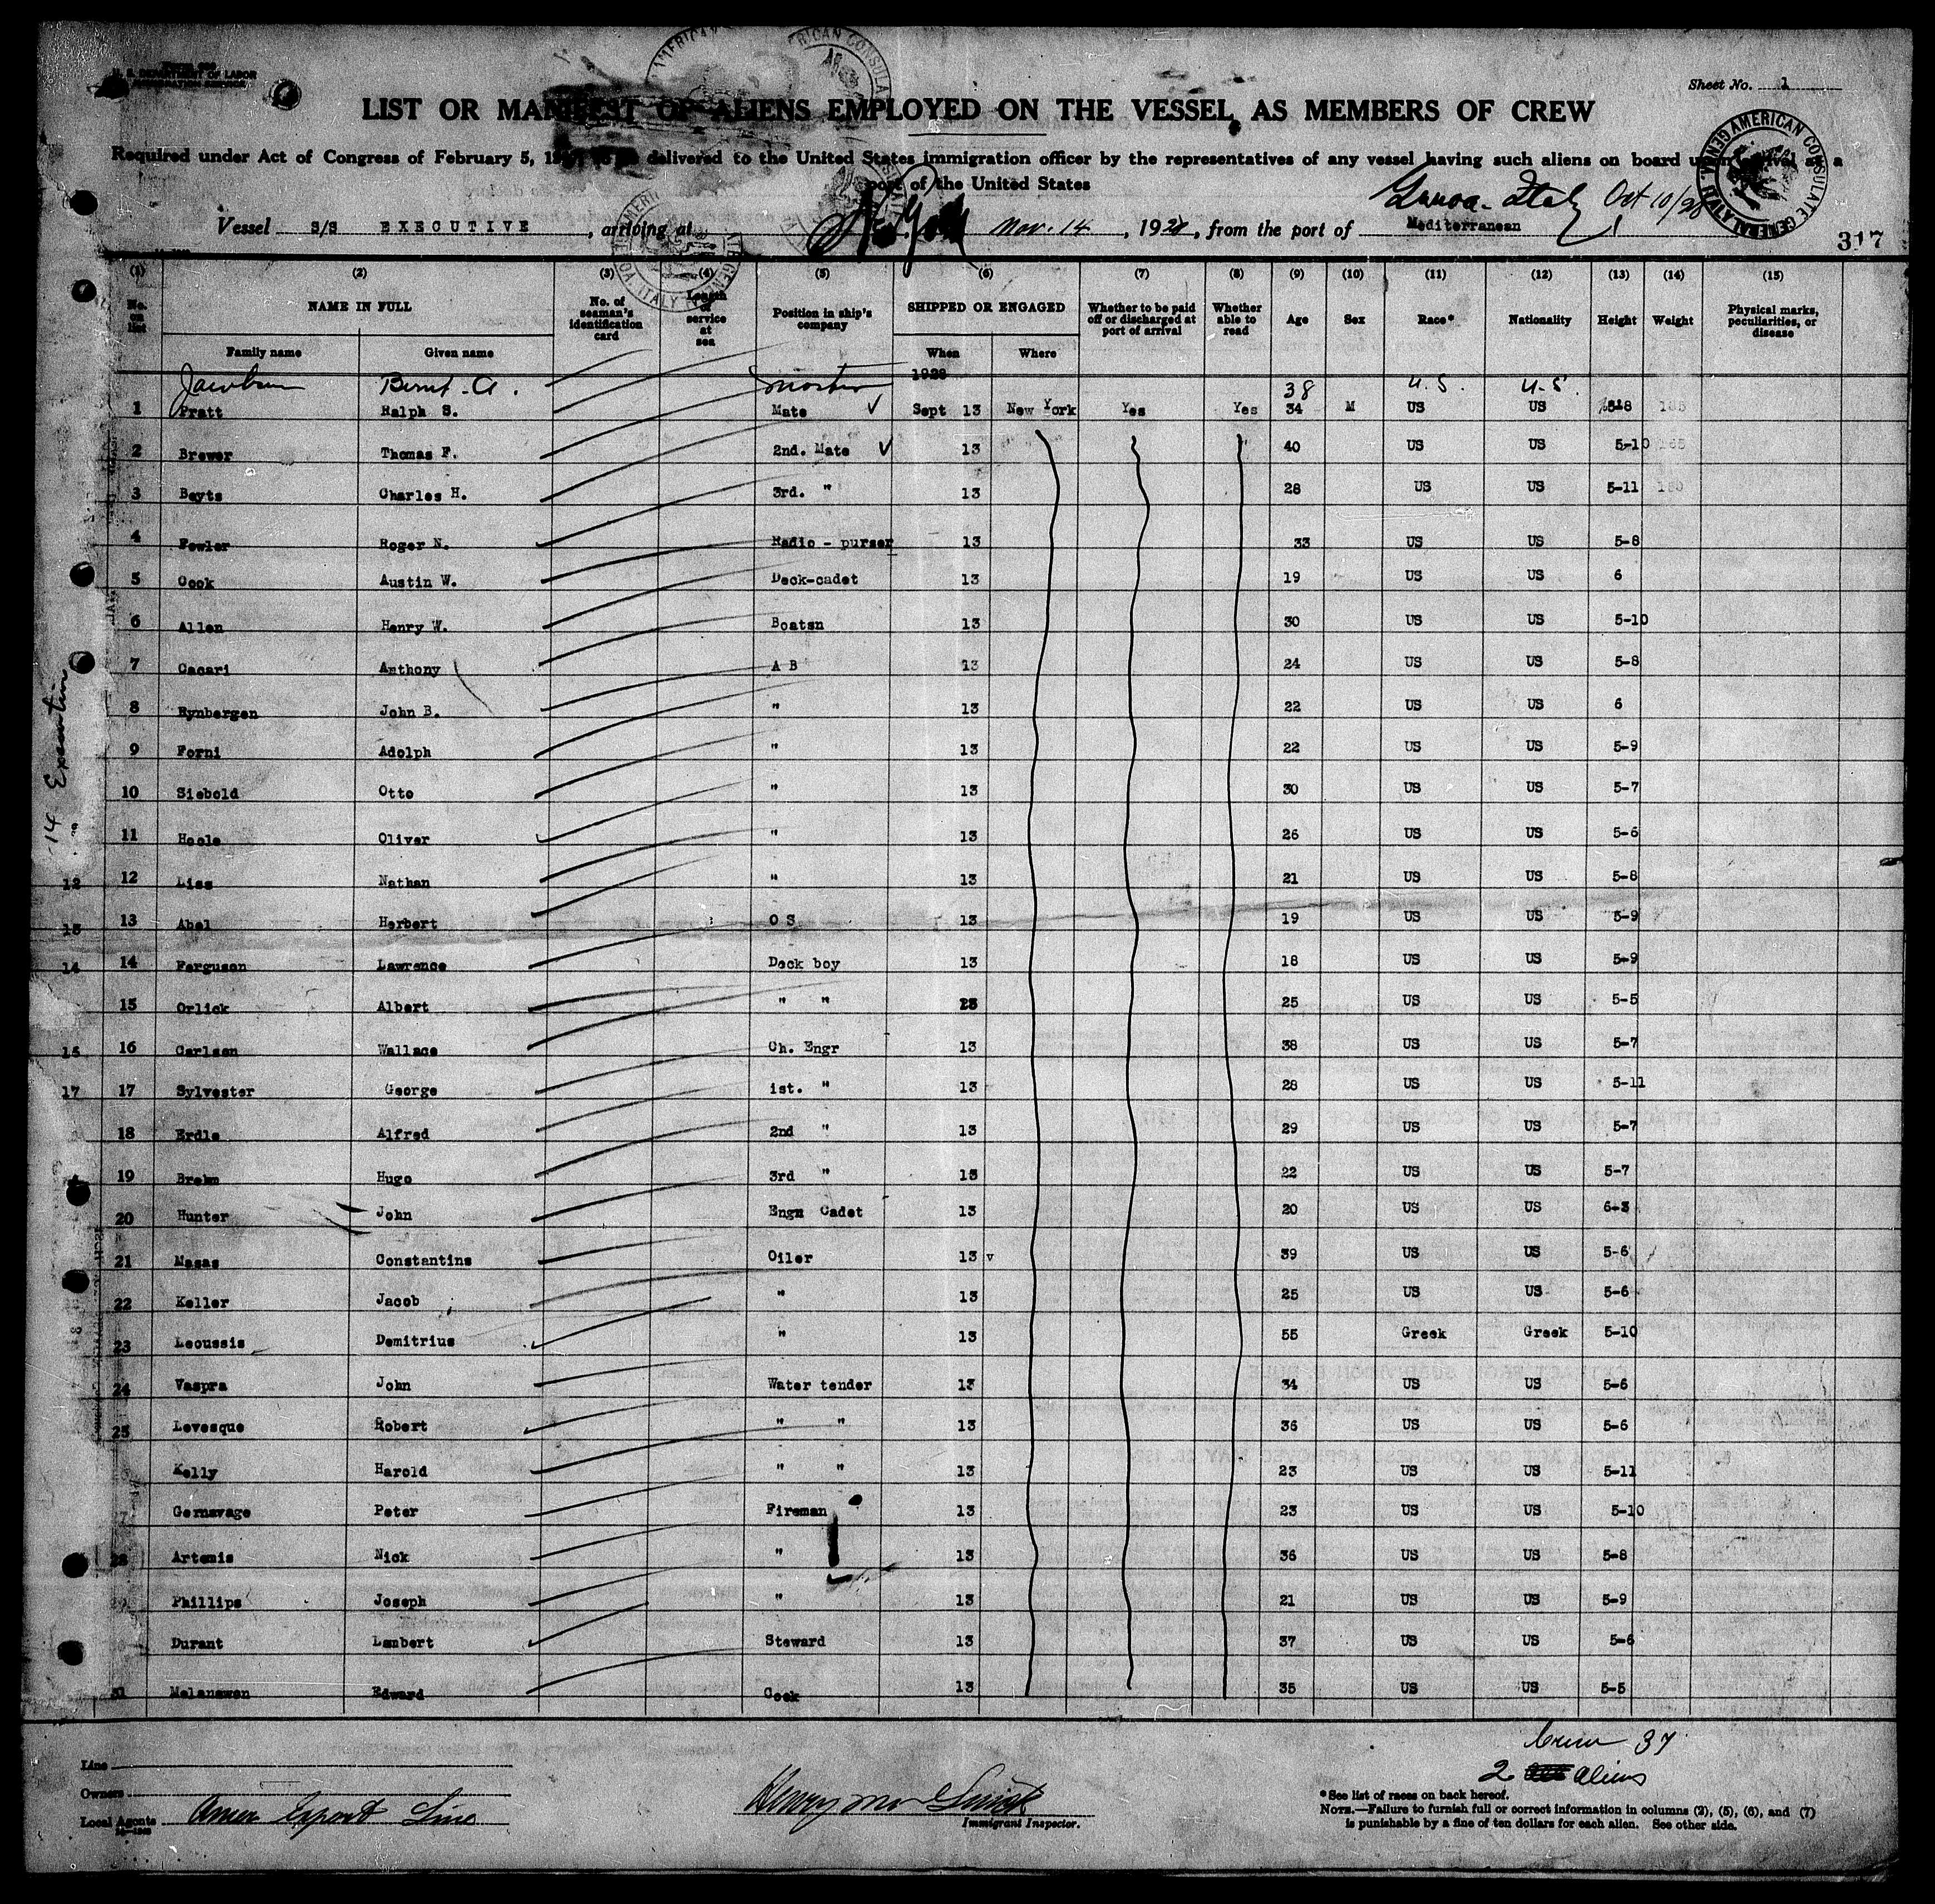 U. S. DEPARTMENT OF LABOR
IMMIGRATION SERVICE
Sheet No. 1
LIST OR MANIFEST OF ALIENS EMPLOYED ON THE VESSEL AS MEMBERS OF CREW
Required under Act of Congress of February 5, delivered to the United States immigration officer by the representatives of any vessel having such aliens on board upon arrival at a
port of the United States
Vessel S/S EXECUTIVE, arriving at New York Nov. 14, 1928, from the port of Genoa - Italy Oct 10/28
Mediterranean
AMERICAN CONSULATE GENERAL
317
(1) (2) (3) (4) (5) (6) (7) (8) (9) (10) (11) (12) (13) (14) (15)
No. on list NAME IN FULL No. of seaman's identification card Length of service at sea Position in ship's company SHIPPED OR ENGAGED Whether to be paid off or discharged at port of arrival Whether able to read Age Sex Race* Nationality Height Weight Physical marks, peculiarities, or disease
Family name Given name When Where
1928
Jacobsen Bernt A. Master 38 U.S. U.S.
1 Pratt Ralph S. Mate Sept 13 New York Yes Yes 34 M US US 5-8
2 Brewer Thomas F. 2nd. Mate 13 40 US US 5-10 165
3 Beyts Charles H. 3rd. " 13 28 US US 5-11
4 Fowler Roger N. Radio - purser 13 33 US US 5-8
5 Cook Austin W. Deck-cadet 13 19 US US 6
6 Allen Henry W. Boatsn 13 30 US US 5-10
7 Cacari Anthony A B 13 24 US US 5-8
8 Rynbergen John B. " 13 22 US US 6
9 Forni Adolph " 13 22 US US 5-9
10 Siebold Otto " 13 30 US US 5-7
11 Hoole Oliver " 13 26 US US 5-6
12 Liss Nathan " 13 21 US US 5-8
13 Abel Herbert O S 13 19 US US 5-9
14 Ferguson Lawrence Deck boy 13 18 US US 5-9
15 Orlick Albert " " 25 US US 5-5
16 Carlsen Wallace Ch. Engr 13 38 US US 5-7
17 Sylvester George 1st. " 13 28 US US 5-11
18 Erdle Alfred 2nd " 13 29 US US 5-7
19 Brehm Hugo 3rd " 13 22 US US 5-7
20 Hunter John Engn Cadet 13 20 US US 6-3
21 Masas Constantine Oiler 13 v 39 US US 5-6
22 Keller Jacob " 13 25 US US 5-6
23 Lecussis Demitrius " 13 55 Greek Greek 5-10
24 Vaspra John Water tender 13 34 US US 5-6
25 Levesque Robert " " 13 36 US US 5-6
Kelly Harold " " 13 23 US US 5-11
Gernavage Peter Fireman 13 23 US US 5-10
28 Artemis Nick " 13 36 US US 5-8
Phillips Joseph " 13 21 US US 5-9
Durant Lambert Steward 13 37 US US 5-6
31 Melanswen Edward Cook 13 35 US US 5-5
14 Executive
Crew 37
2 aliens
Line
Owners
Local Agents Amer Export Line
Immigrant Inspector.
*See list of races on back hereof.
NOTE.—Failure to furnish full or correct information in columns (2), (5), (6), and (7)
is punishable by a fine of ten dollars for each alien. See other side.